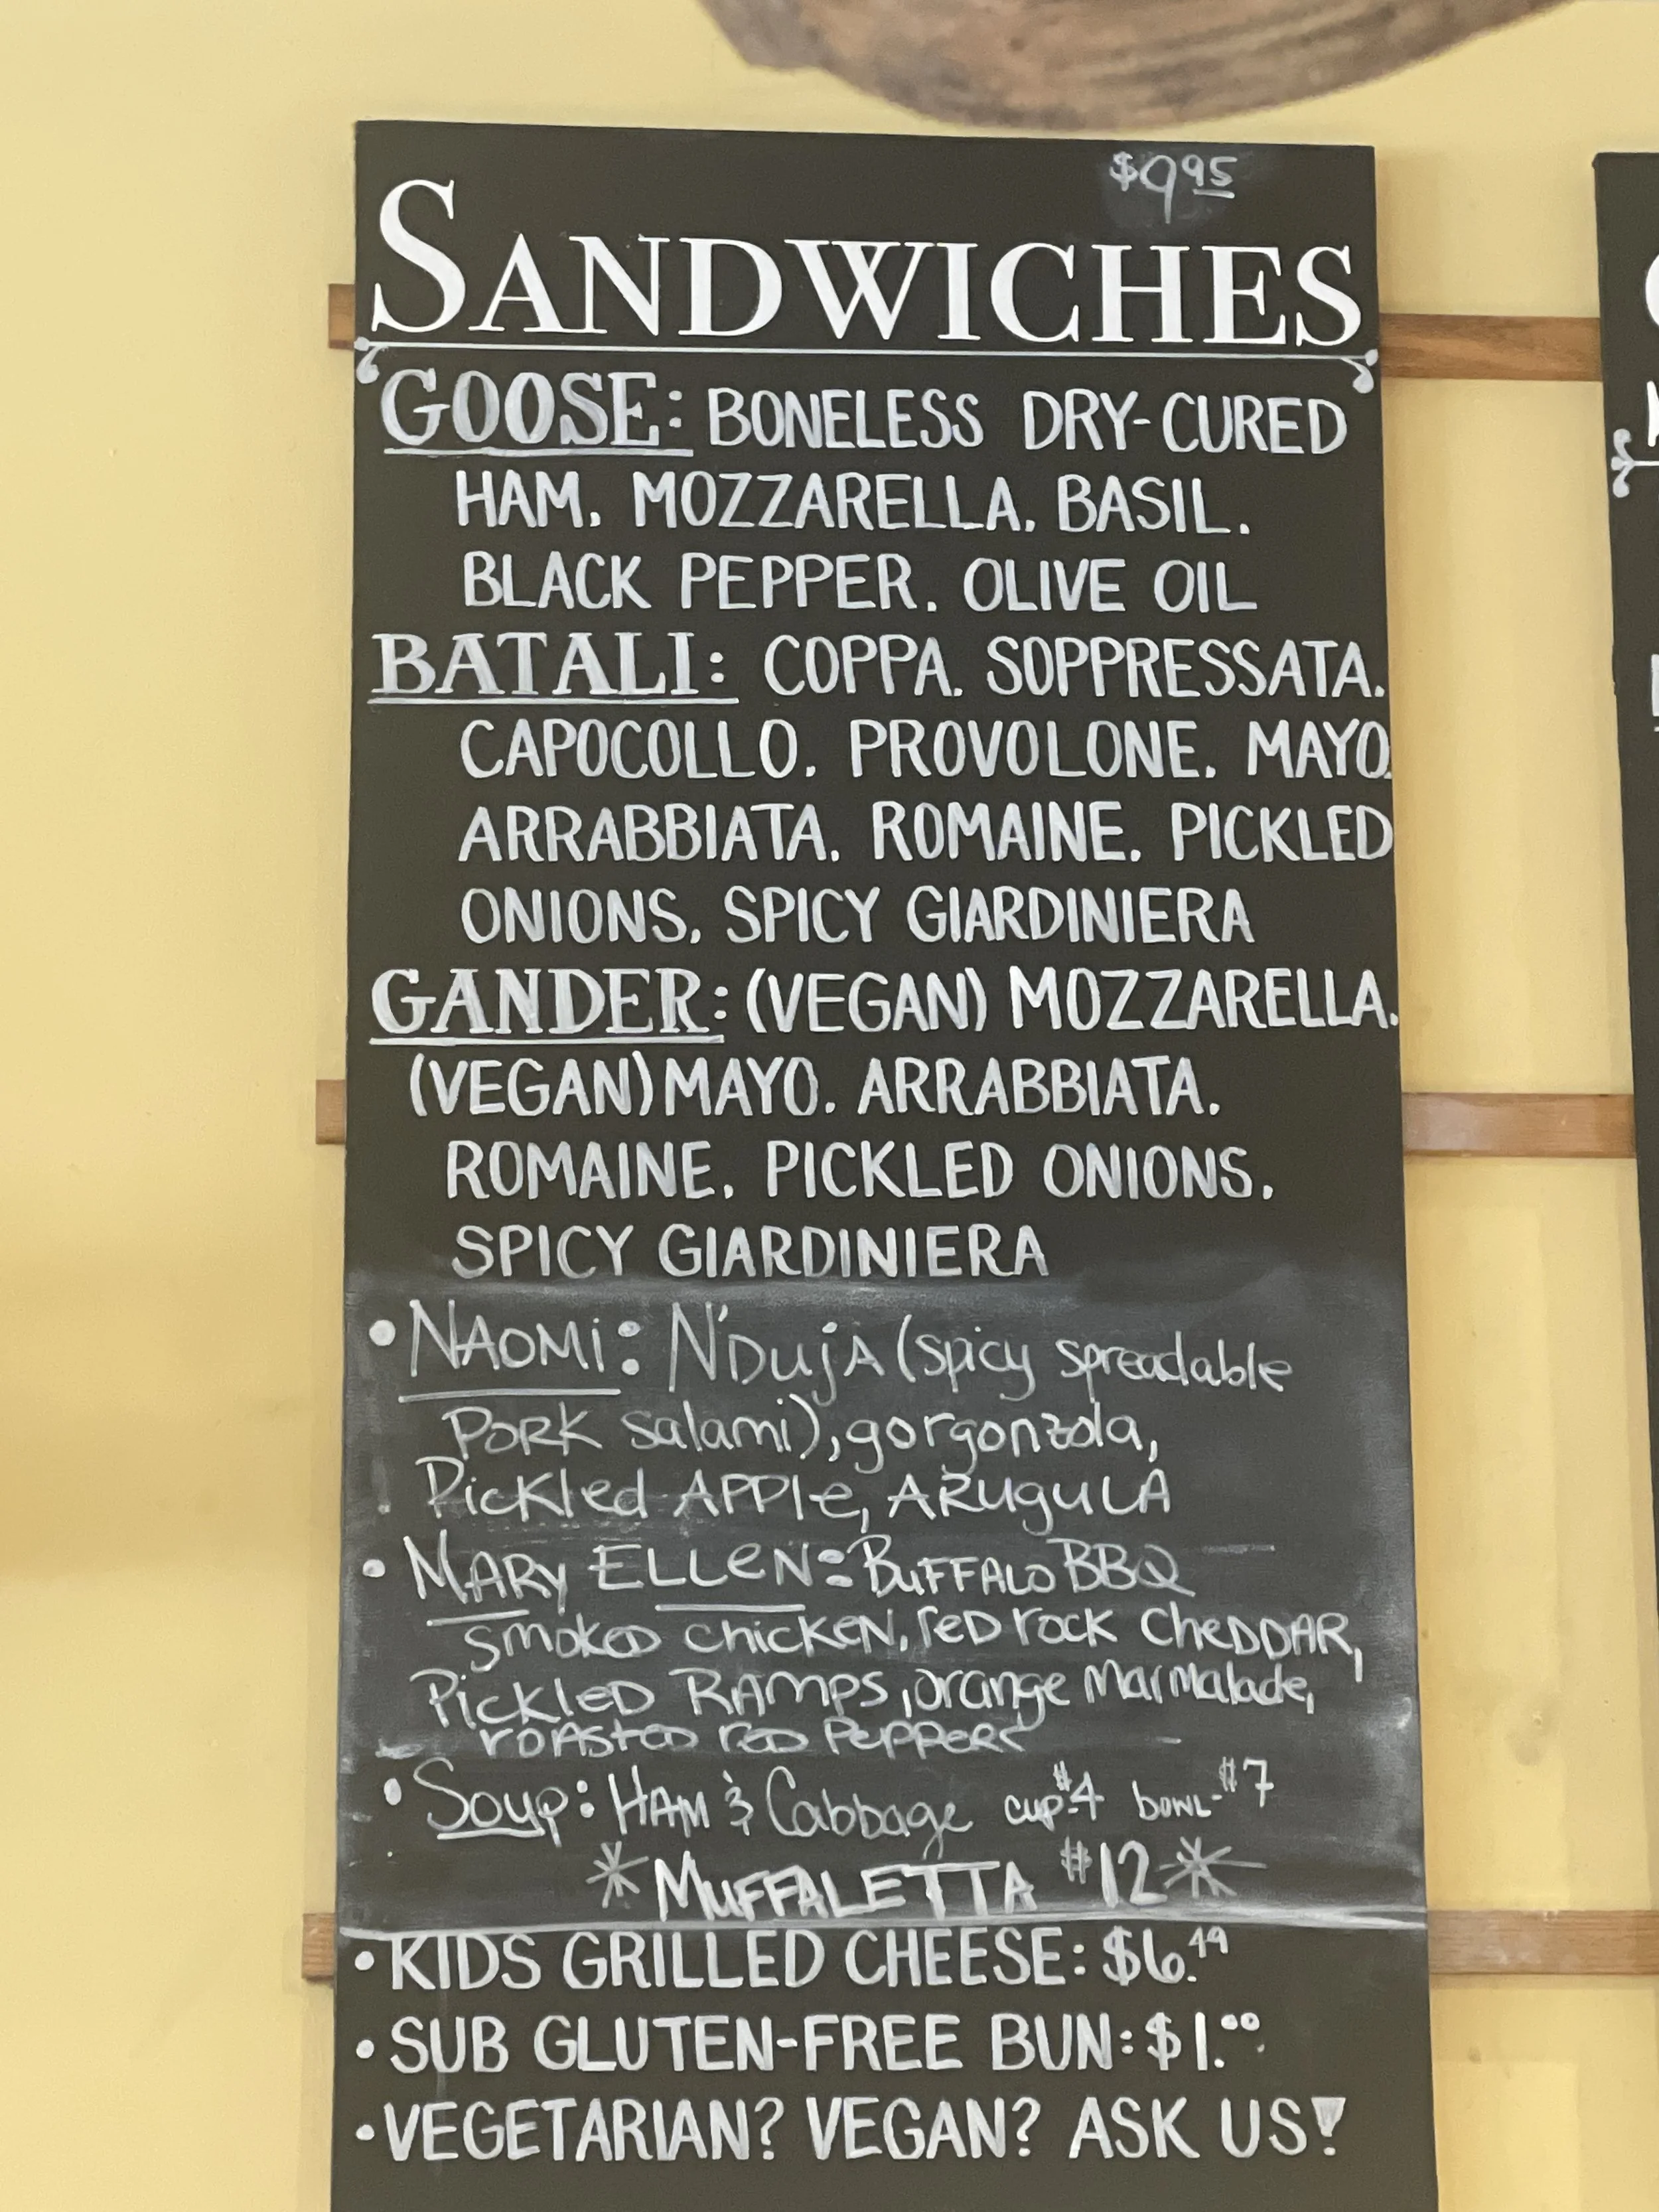 $9.95
SANDWICHES
GOOSE: BONELESS DRY-CURED
HAM. MOZZARELLA. BASIL.
BLACK PEPPER. OLIVE OIL
BATALI: COPPA. SOPPRESSATA.
CAPOCOLLO. PROVOLONE. MAYO.
ARRABBIATA. ROMAINE. PICKLED
ONIONS. SPICY GIARDINIERA
GANDER: (VEGAN) MOZZARELLA.
(VEGAN) MAYO. ARRABBIATA.
ROMAINE. PICKLED ONIONS.
SPICY GIARDINIERA
• NAOMi: N'DujA (spicy spreadable
PORK salami), gorgonzola,
Pickled APPle, ARuguLA
• MARy ELLeN: BuFFALO BBQ
smokeD chickeN, reD rock CheDDAR,
PickLeD RAmps, orange MarMalade,
roAsteD reD PePPeRs
• Soup: HAM & Cabbage cup-$4 bowL-$7
* MuFFALETTA $12 *
• KIDS GRILLED CHEESE: $6.49
• SUB GLUTEN-FREE BUN: $1.00
• VEGETARIAN? VEGAN? ASK US!